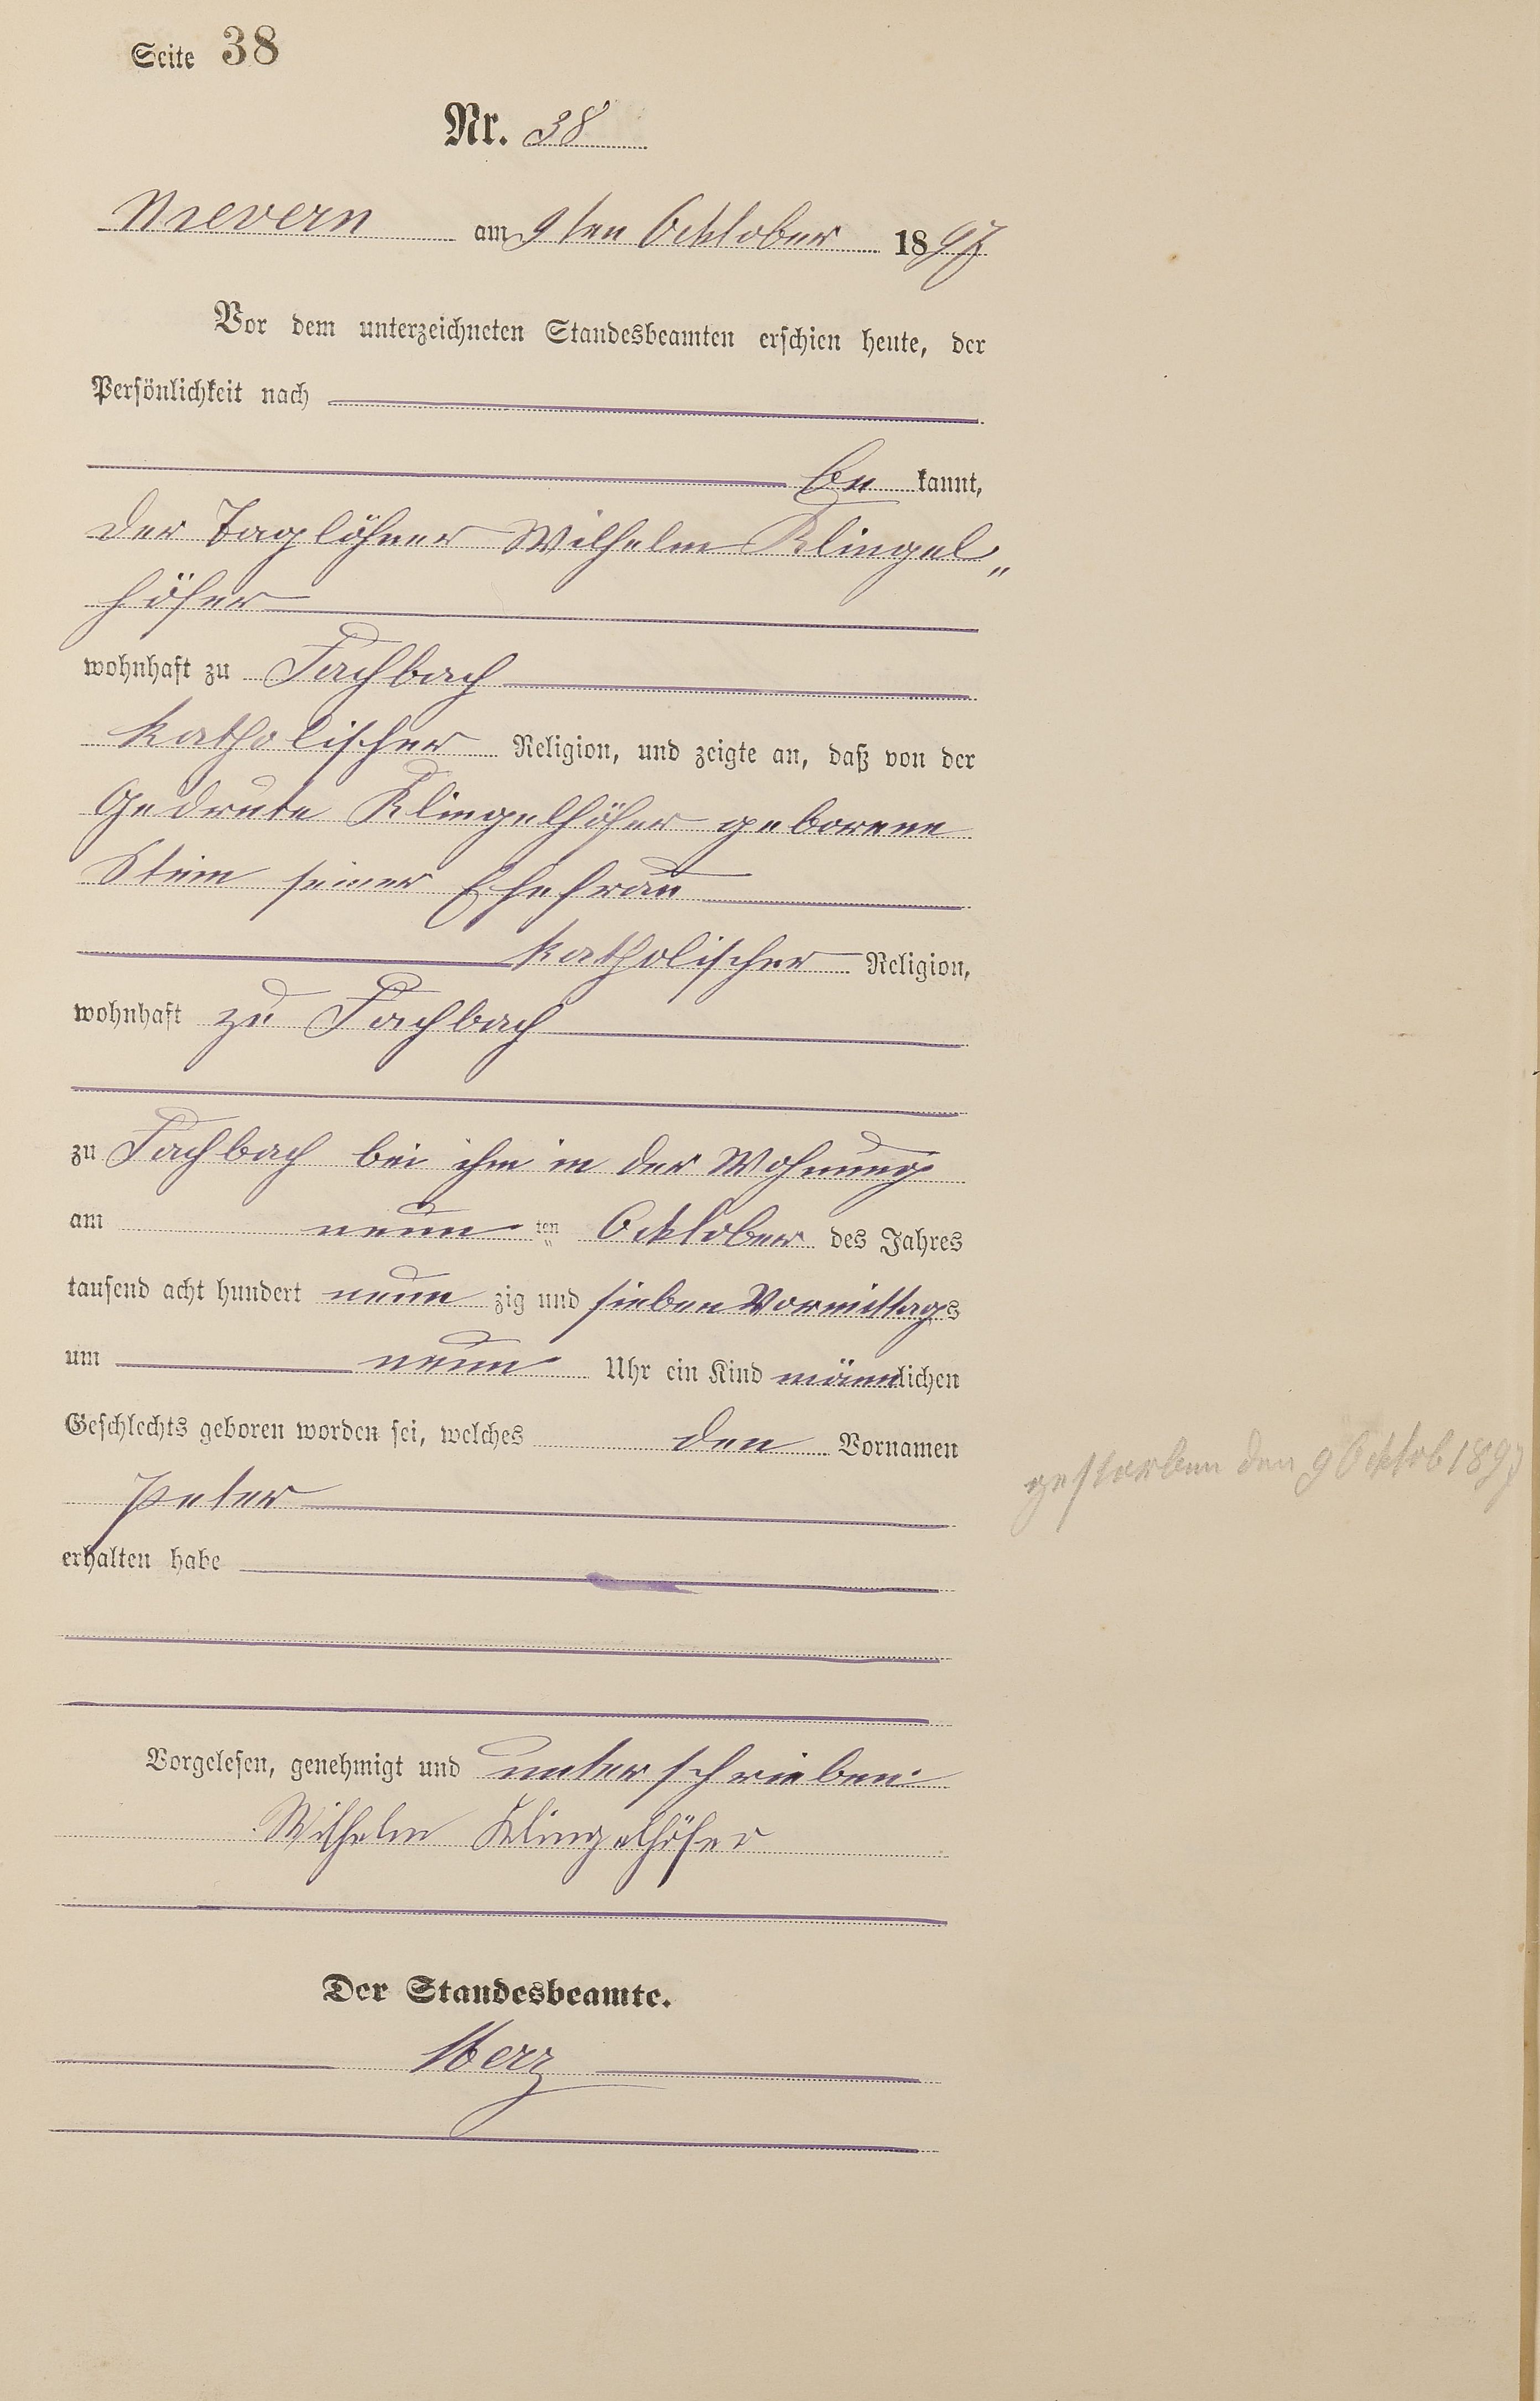 Seite 38
Nr. 38
Nievern am 9ten Ocktober 1897
Vor dem unterzeichneten Standesbeamten erschien heute, der
Persönlichkeit nach
be kannt,
der Taglöhner Wilhelm Klingel„
höfer
wohnhaft zu Fachbach
katholischer Religion, und zeigte an, daß von der
Gedrute Klingelhöfer geborene
Stein seiner Ehefrau
katholischer Religion,
wohnhaft zu Fachbach
zu Fachbach bei ihm in der Wohnung
am neun ten Ocktober des Jahres
tausend acht hundert neun zig und sieben Vormittags
um neun Uhr ein Kind männlichen
Geschlechts geboren worden sei, welches den Vornamen
Peter
erhalten habe
gestorben den 9 Oktob 1897
Vorgelesen, genehmigt und unterschrieben:
Wilhelm Klingelhöfer
Der Standesbeamte.
Herz